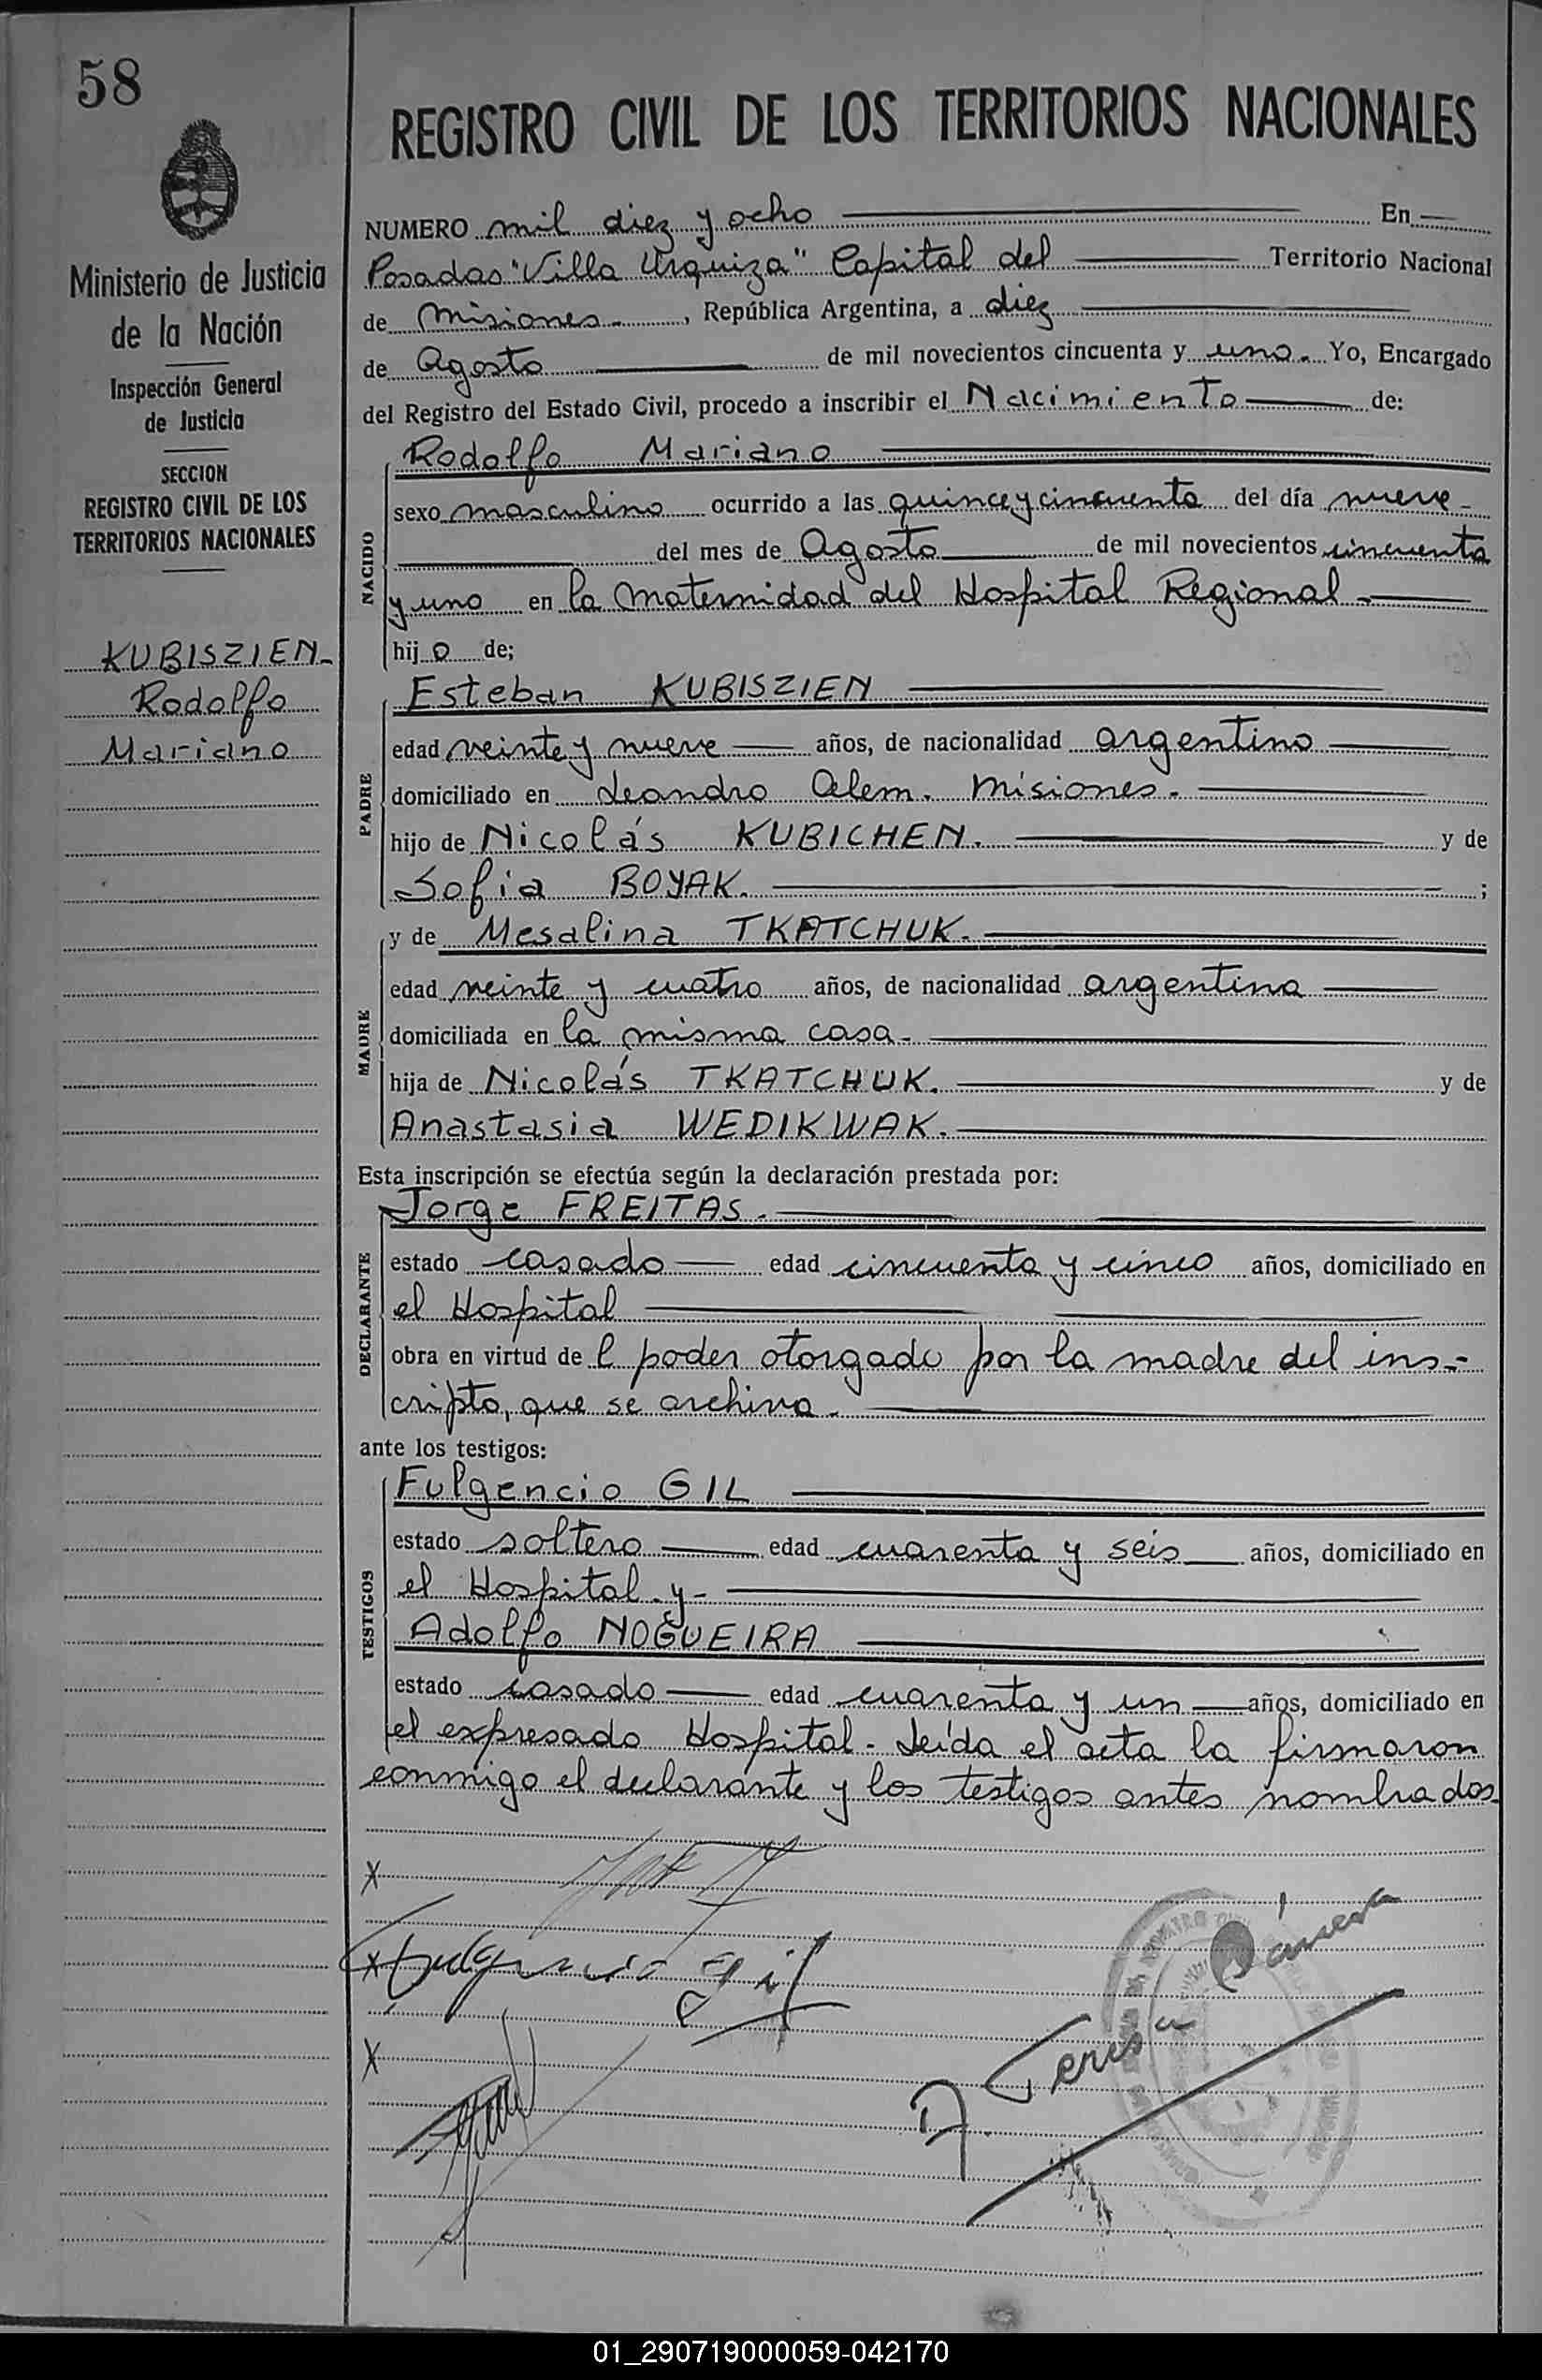 58
Ministerio de Justicia
de la Nación
Inspección General
de Justicia
SECCION
REGISTRO CIVIL DE LOS
TERRITORIOS NACIONALES
KUBISZIEN-
Rodolfo
Mariano
REGISTRO CIVIL DE LOS TERRITORIOS NACIONALES
NUMERO mil diez y ocho En
Posadas "Villa Urquiza" Capital del Territorio Nacional
de Misiones-, República Argentina, a diez
de Agosto de mil novecientos cincuenta y uno. Yo, Encargado
del Registro del Estado Civil, procedo a inscribir el Nacimiento de:
NACIDO
Rodolfo Mariano
sexo masculino ocurrido a las quince y cincuenta del día nueve-
del mes de Agosto de mil novecientos cincuenta
y uno en la maternidad del Hospital Regional-
hijo de;
PADRE
Esteban KUBISZIEN
edad veinte y nueve años, de nacionalidad argentino
domiciliado en Leandro Alem. Misiones-
hijo de Nicolás KUBICHEN. y de
Sofia BOYAK. ;
MADRE
y de Mesalina TKATCHUK.
edad veinte y cuatro años, de nacionalidad argentina
domiciliada en la misma casa-
hija de Nicolás TKATCHUK. y de
Anastasia WEDIKWAK.
Esta inscripción se efectúa según la declaración prestada por:
DECLARANTE
Jorge FREITAS.
estado casado edad cincuenta y cinco años, domiciliado en
el Hospital
obra en virtud del poder otorgado por la madre del ins-
cripto, que se archiva.
ante los testigos:
TESTIGOS
Fulgencio GIL
estado soltero edad cuarenta y seis años, domiciliado en
el Hospital y-
Adolfo NOGUEIRA
estado casado edad cuarenta y un años, domiciliado en
el expresado Hospital- Leída el acta la firmaron
conmigo el declarante y los testigos antes nombrados-
X
X Fulgencio Gil
X
A. Teresa
01_290719000059-042170